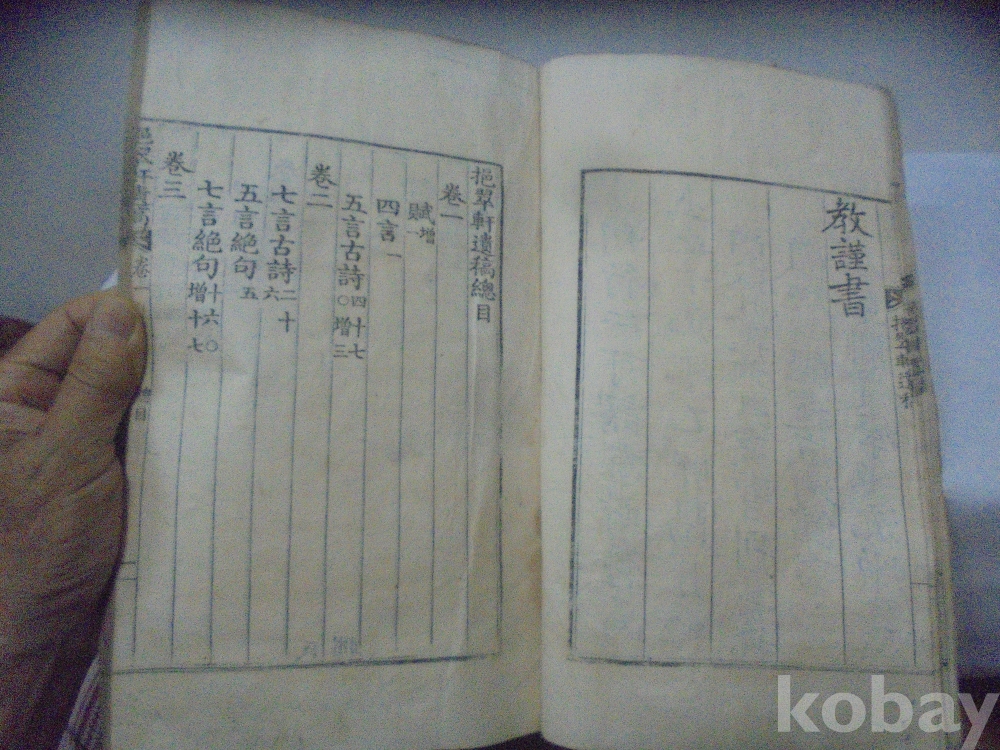 教謹書
挹翠軒遺稿總目
卷一
賦增一
四言一
五言古詩四十七○增三
卷二
七言古詩二十六
五言絕句五
七言絕句十六○增十七
卷三
目
kobay